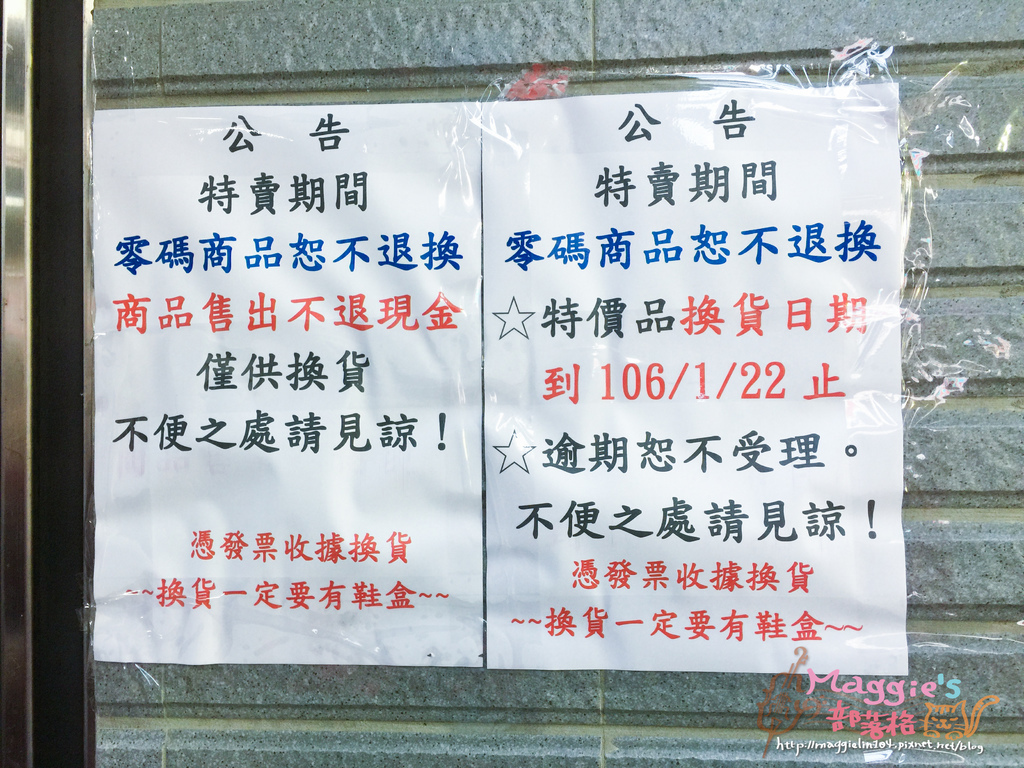 公 告
特賣期間
零碼商品恕不退換
商品售出不退現金
僅供換貨
不便之處請見諒！
憑發票收據換貨
~~換貨一定要有鞋盒~~
公 告
特賣期間
零碼商品恕不退換
☆特價品換貨日期
到 106/1/22 止
☆逾期恕不受理。
不便之處請見諒！
憑發票收據換貨
~~換貨一定要有鞋盒~~
Maggie's
部落格
http://maggielin104.pixnet.net/blog